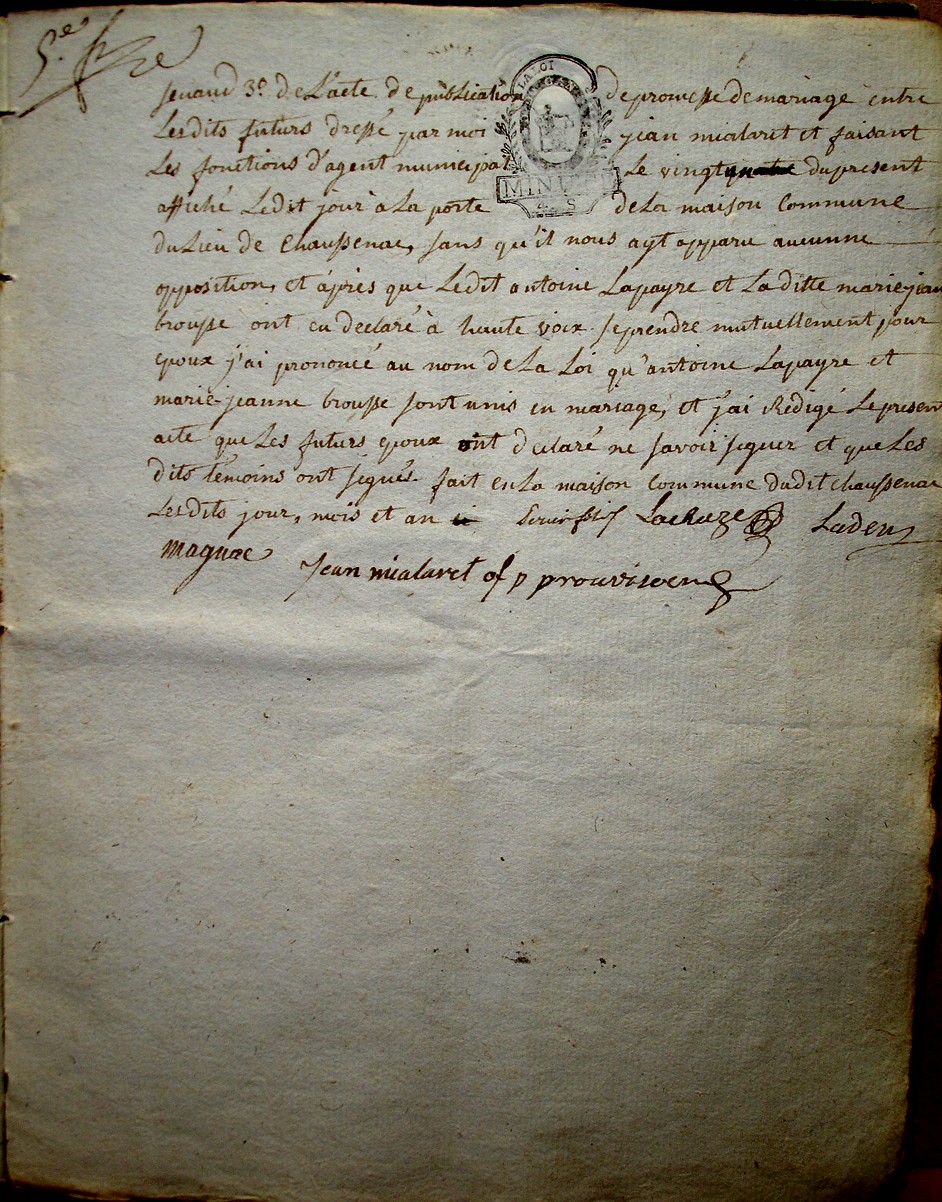 5.e
senaud 3.º de L'acte de publication de promesse de mariage entre
Lesdits futurs dressé par moi jean mialaret et faisant
Les fonctions d'agent municipa Le vingt du présent
affiché Ledit jour à La porte de La maison Commune
du Lieu de Chaussenac, sans qu'il nous ayt apparu aucunne
opposition, et après que Ledit antoine Lapayre et La ditte marie jean
brousse ont eu declaré à haute voix se prendre mutuellement pour
epoux j'ai prononcé au nom de La Loi qu'antoine Lapayre et
marie-jeanne brousse sont unis en mariage, et j'ai Rédigé Le present
acte que Les futurs epoux ont declaré ne savoir signer et que Les
dits témoins ont signés. fait en La maison Commune dudit chaussenac
Lesdits jour, mois et an Lachaze Laden
magnac
Jean mialaret of p prouvisoer
LA LOI
MINUTE
4 S